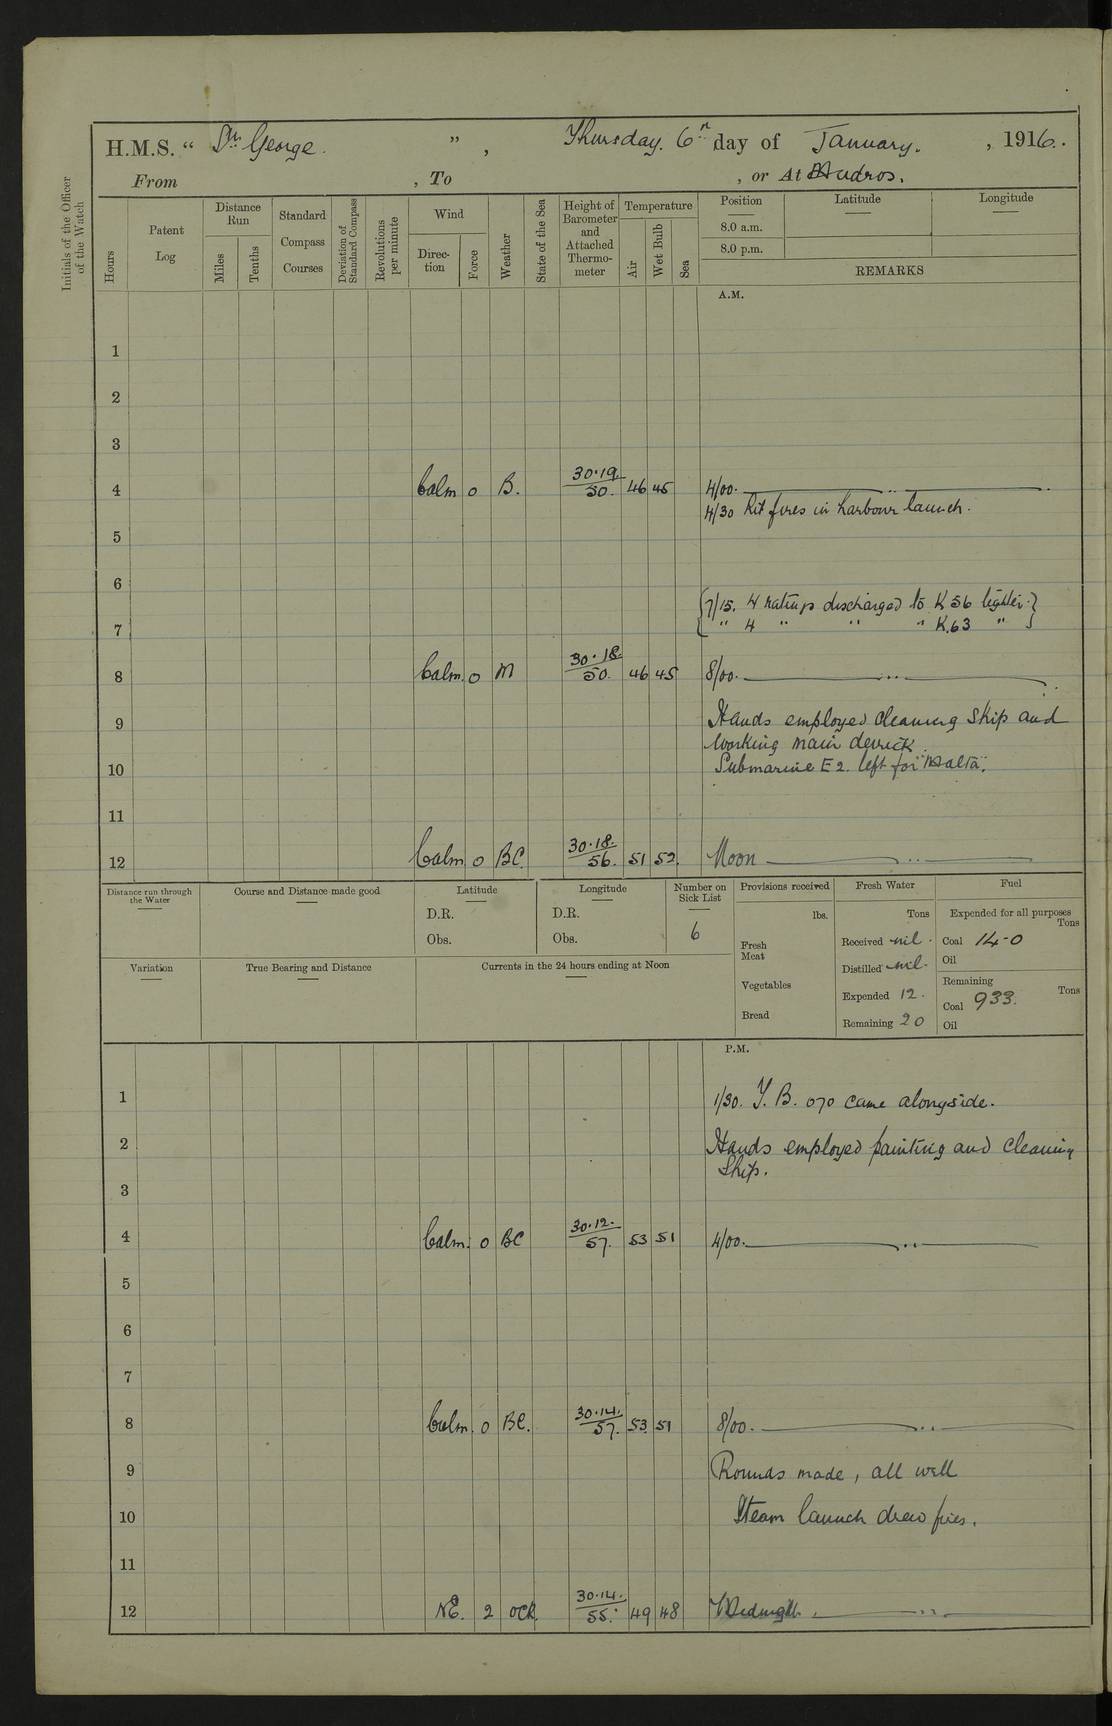 H.M.S. “ St. George. ” , Thursday. 6th day of January. , 1916.
From , To , or At Mudros.
Initials of the Officer of the Watch
Hours
Patent Log
Distance Run
Miles
Tenths
Standard Compass Courses
Deviation of Standard Compass
Revolutions per minute
Wind
Direction
Force
Weather
State of the Sea
Height of Barometer and Attached Thermometer
Temperature
Air
Wet Bulb
Sea
Position
8.0 a.m.
8.0 p.m.
Latitude
Longitude
REMARKS
A.M.
1
2
3
4 Calm 0 B. 30.19. 50. 46 45 4/00.
4/30 Lit fires in harbour launch.
5
6
7/15. 4 ratings discharged to K 56 lighter.
7 " 4 " " " K.63 "
8 Calm. 0 M 30.18. 50. 46 45 8/00.
9 Hands employed cleaning ship and
working main derrick.
10 Submarine E 2. left for "Malta".
11
12 Calm 0 BC. 30.18. 56. 51 52. Noon
Distance run through the Water
Course and Distance made good
Latitude
D.R.
Obs.
Longitude
D.R.
Obs.
Number on Sick List
6
Provisions received
lbs.
Fresh Meat
Vegetables
Bread
Fresh Water
Tons
Received nil.
Distilled nil.
Expended 12.
Remaining 20
Fuel
Expended for all purposes
Tons
Coal 14-0
Oil
Remaining
Tons
Coal 933.
Oil
Variation
True Bearing and Distance
Currents in the 24 hours ending at Noon
P.M.
1 1/30. Y. B. 070 came alongside.
2 Hands employed painting and cleaning
Ship.
3
4 Calm. 0 BC 30.12. 57. 53 51 4/00.
5
6
7
8 Calm. 0 BC. 30.14. 57. 53. 51 8/00.
9 Rounds made, all well
10 Steam launch drew fires.
11
12 NE. 2 OCR. 30.14. 55. 49 48 Midnight.